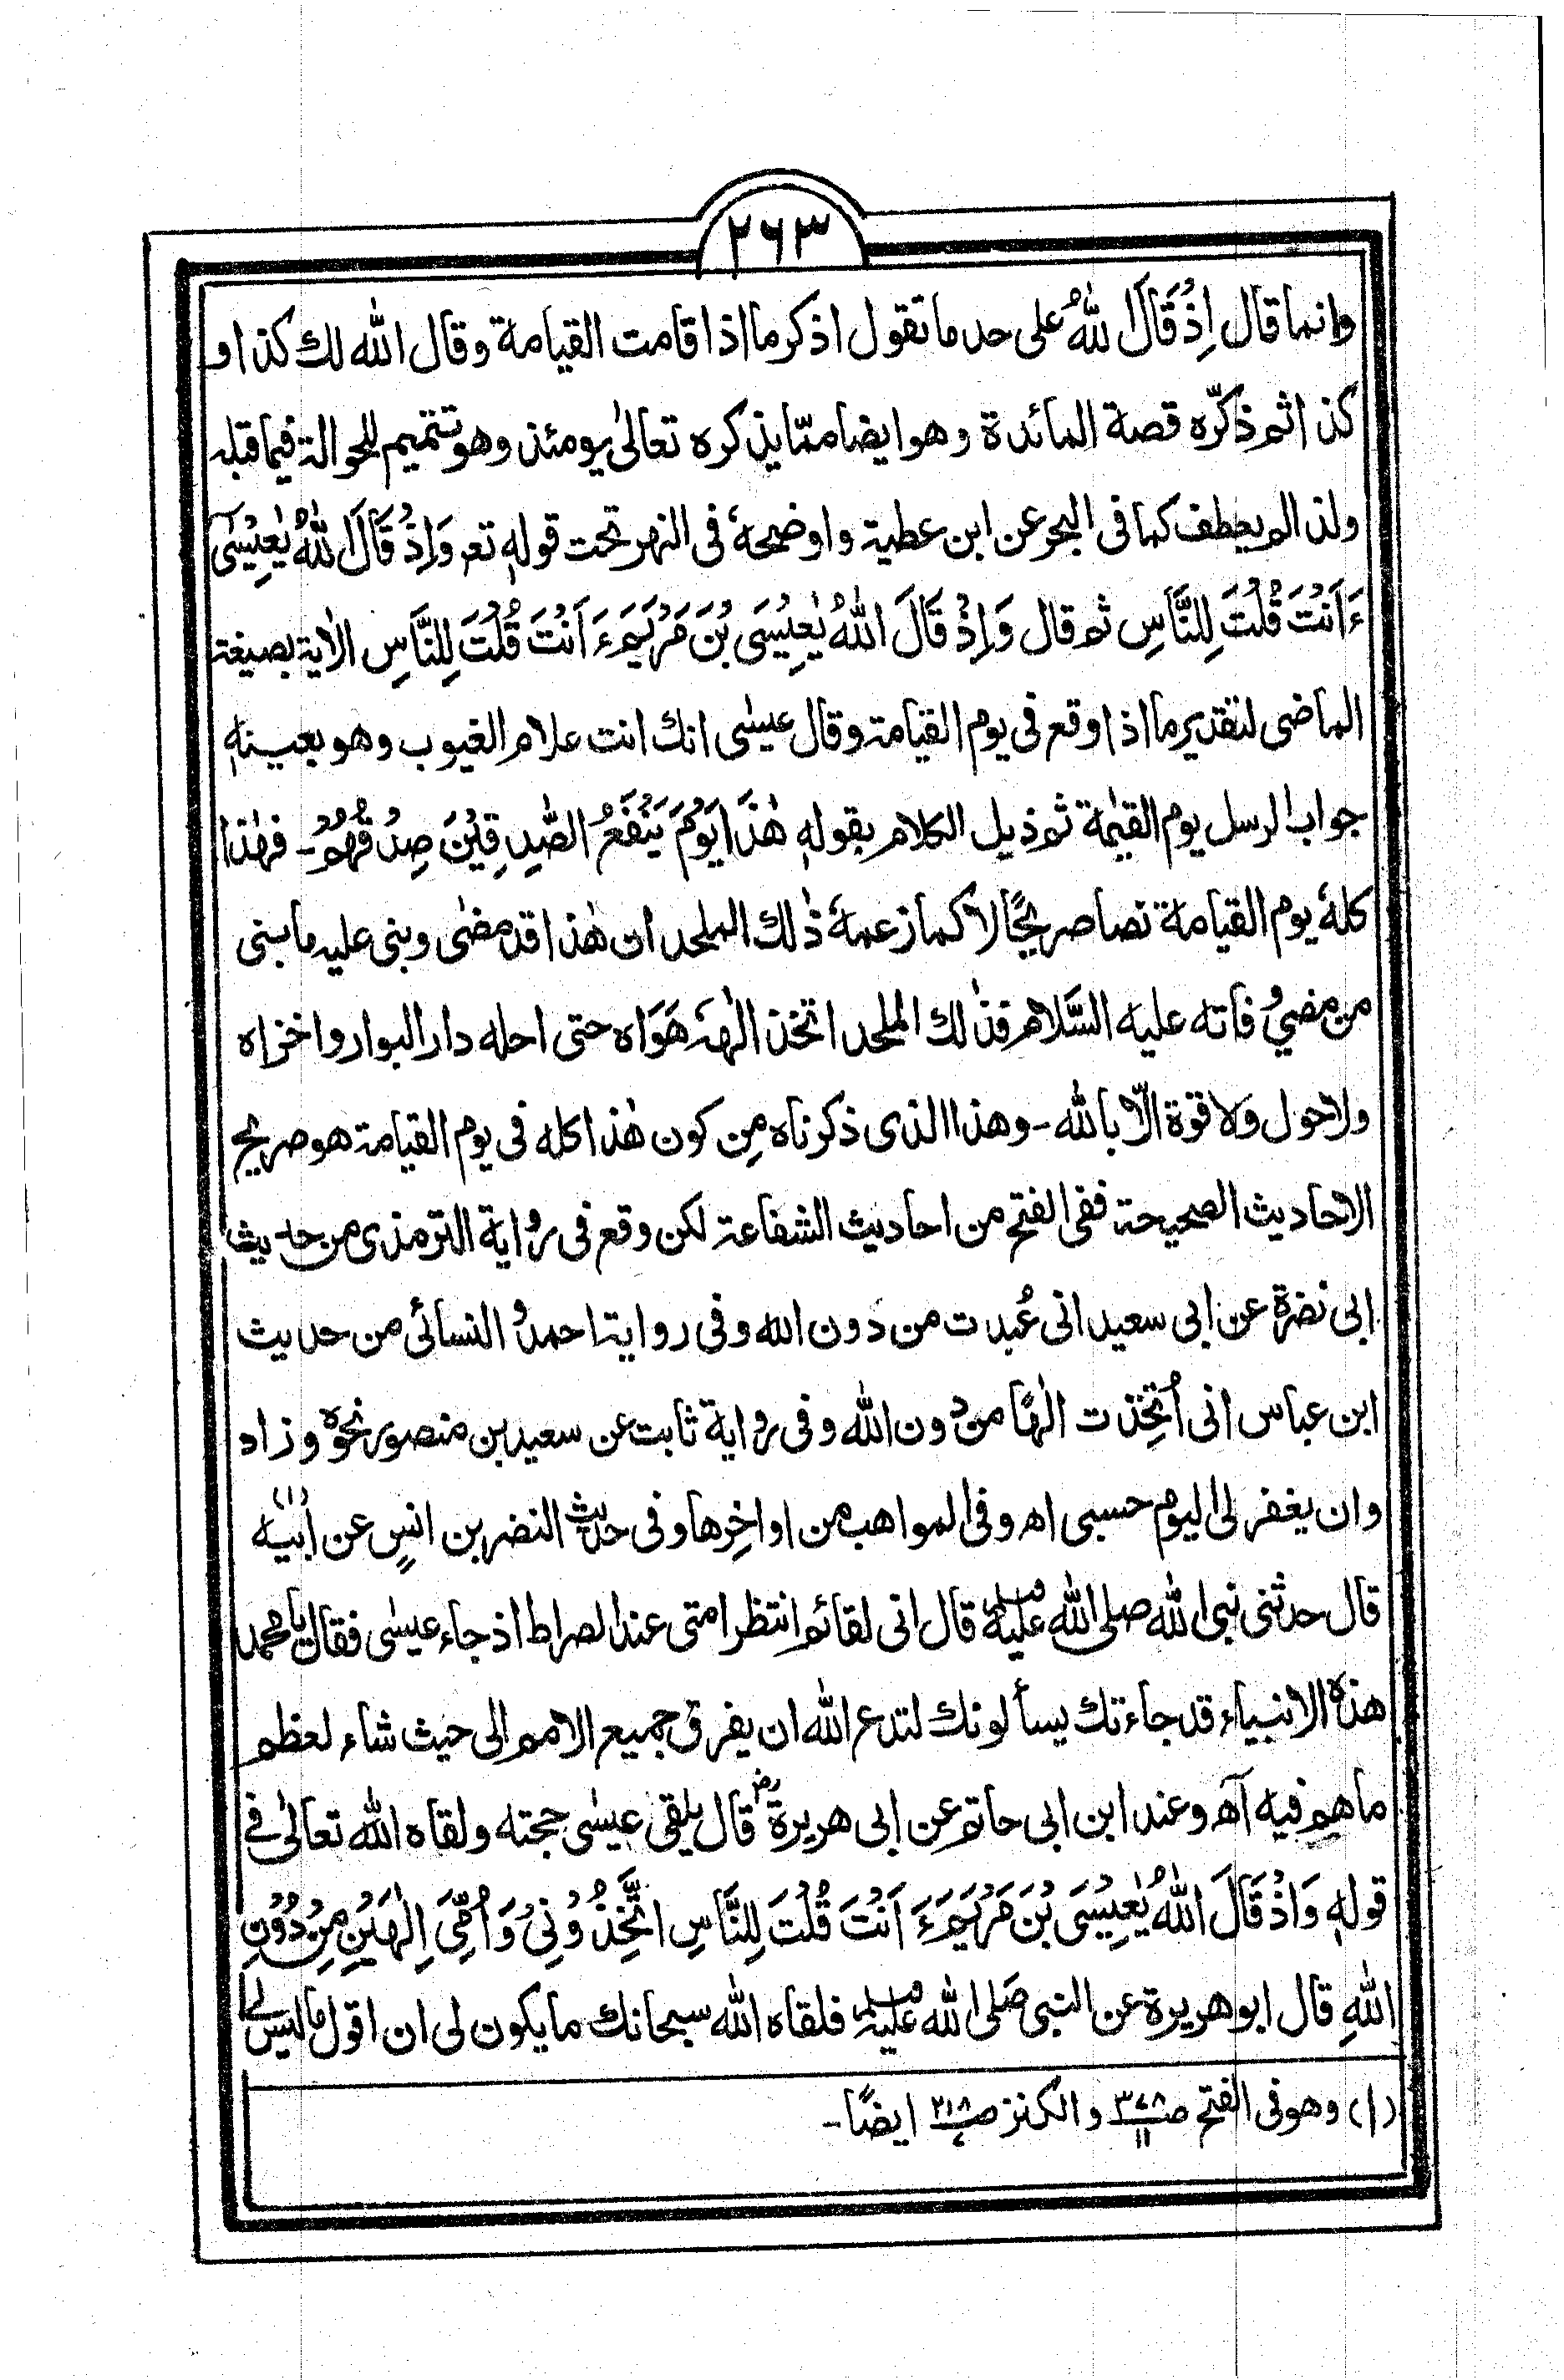 ٢٦٣
وانما قال اِذْ قَالَ اللهُ على حد ما تقول اذكر ما اذا قامت القيامة وقال الله لك كذا و
كذا ثم ذكّره قصة المائدة وهو ايضا ممّا يذكره تعالىٰ يومئذ وهو تتميم للحوالة فيما قبله
ولذا لم يعطف كما فى البحر عن ابن عطية واوضحهٗ فى النهر تحت قولهٖ تعہ وَاِذْ قَالَ اللهُ يٰعِيْسَى
ءَ اَنْتَ قُلْتَ لِلنَّاسِ ثم قال وَاِذْ قَالَ اللهُ يٰعِيْسَى بْنَ مَرْيَمَ ءَ اَنْتَ قُلْتَ لِلنَّاسِ الاٰية بصيغة
الماضى لتقدير ما اذا وقع فى يوم القيامة وقال عيسٰى انك انت علام الغيوب وهو بعينهٖ
جواب الرسل يوم القيٰمة ثم ذيل الكلام بقولهٖ هٰذَا يَوْمُ يَنْفَعُ الصّٰدِقِيْنَ صِدْقُهُمْ ـ فهٰذا
كلهٗ يوم القيامة نصا صريحًا لا كما زعمهٗ ذٰلك الملحد ان هٰذا قد مضٰى وبنى عليه ما بنى
من مضيّ وفاته عليه السَّلام فذٰلك الملحد اتخذ الٰهَهٗ هَوَاه حتى احله دار البوار واخزاه
ولا حول ولا قوة الّا بالله ـ وهذا الذى ذكرناه مِن كون هٰذا كله فى يوم القيامة هو صريح
الاحاديث الصحيحة ففى الفتح من احاديث الشفاعة لكن وقع فى رواية الترمذى من حديث
ابى نضرة عن ابى سعيد انى عُبدت من دون الله وفى رواية احمد و النسائى من حديث
ابن عباس انى اُتخِذت الٰهًا من دون الله وفى رواية ثابت عن سعيد بن منصور نحوه وزاد
وان يغفر لى اليوم حسبى اهـ وفى المواهب من اواخِرها وفى حديث النضر بن انسٍ عن ابيه (١)
قال حدثنى نبى الله صلى الله عليه وسلم قال انى لقائم انتظر امتى عند الصراط اذ جاء عيسٰى فقال يا محمد
هذه الانبياء قد جاءتك يسألونك لتدع الله ان يفرق جميع الامم الى حيث شاء لعظم
ما هم فيه آهـ وعند ابن ابى حاتم عن ابى هريرةؓ قال يلقى عيسٰى حجته ولقاه الله تعالىٰ فے
قولهٖ وَاِذْ قَالَ اللهُ يٰعِيْسَى بْنَ مَرْيَمَ ءَ اَنْتَ قُلْتَ لِلنَّاسِ اتَّخِذُوْنِيْ وَاُمِّيَ اِلٰهَيْنِ مِنْ دُوْنِ
اللهِ قال ابو هريرة عن النبى صَلى الله عليه وسلم فلقاه الله سبحانك ما يكون لى ان اقول ما ليس لے
(١) وهو فى الفتح صـ٣٧٨/١١ و الكنز صـ٢١٨/٧ ايضًا ـ